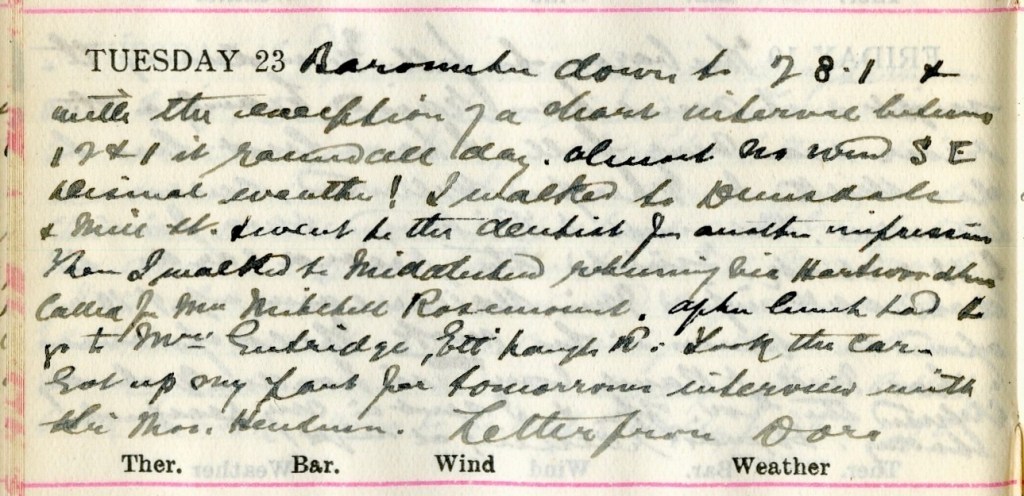 TUESDAY 23 Barometer down to 28.1 &
with the exception of a short interval between
12 & 1 it rained all day. almost no wind S E
Dismal weather! I walked to Dunsdale
& Mill St. & went to the dentist for another impression
Then I walked to Middlestead returning via Hartwoodburn
Called for Mrs Mitchell Rosemount. after lunch had to
go to Mrs Gutridge, Ett R: Took the car.
Got up my for tomorrows interview with
Letter from Dora
Ther. Bar. Wind Weather